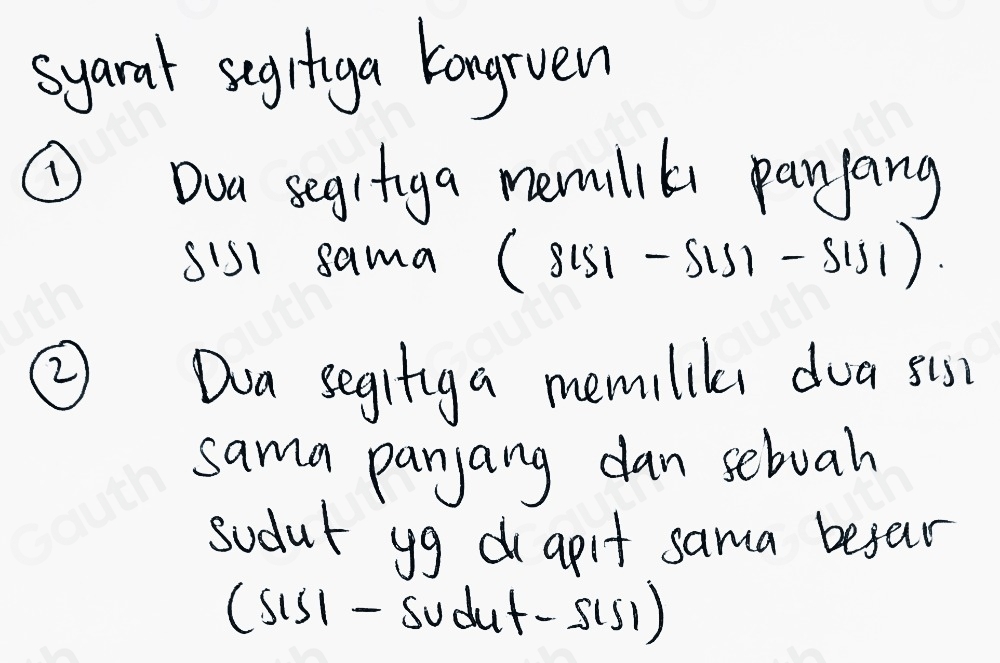 syarat segitiga kongruen
① Dua segitiga memiliki panjang
sisi sama (sisi - sisi - sisi).
② Dua segitiga memiliki dua sisi
sama panjang dan sebuah
sudut yg di apit sama besar
(sisi - sudut - sisi)